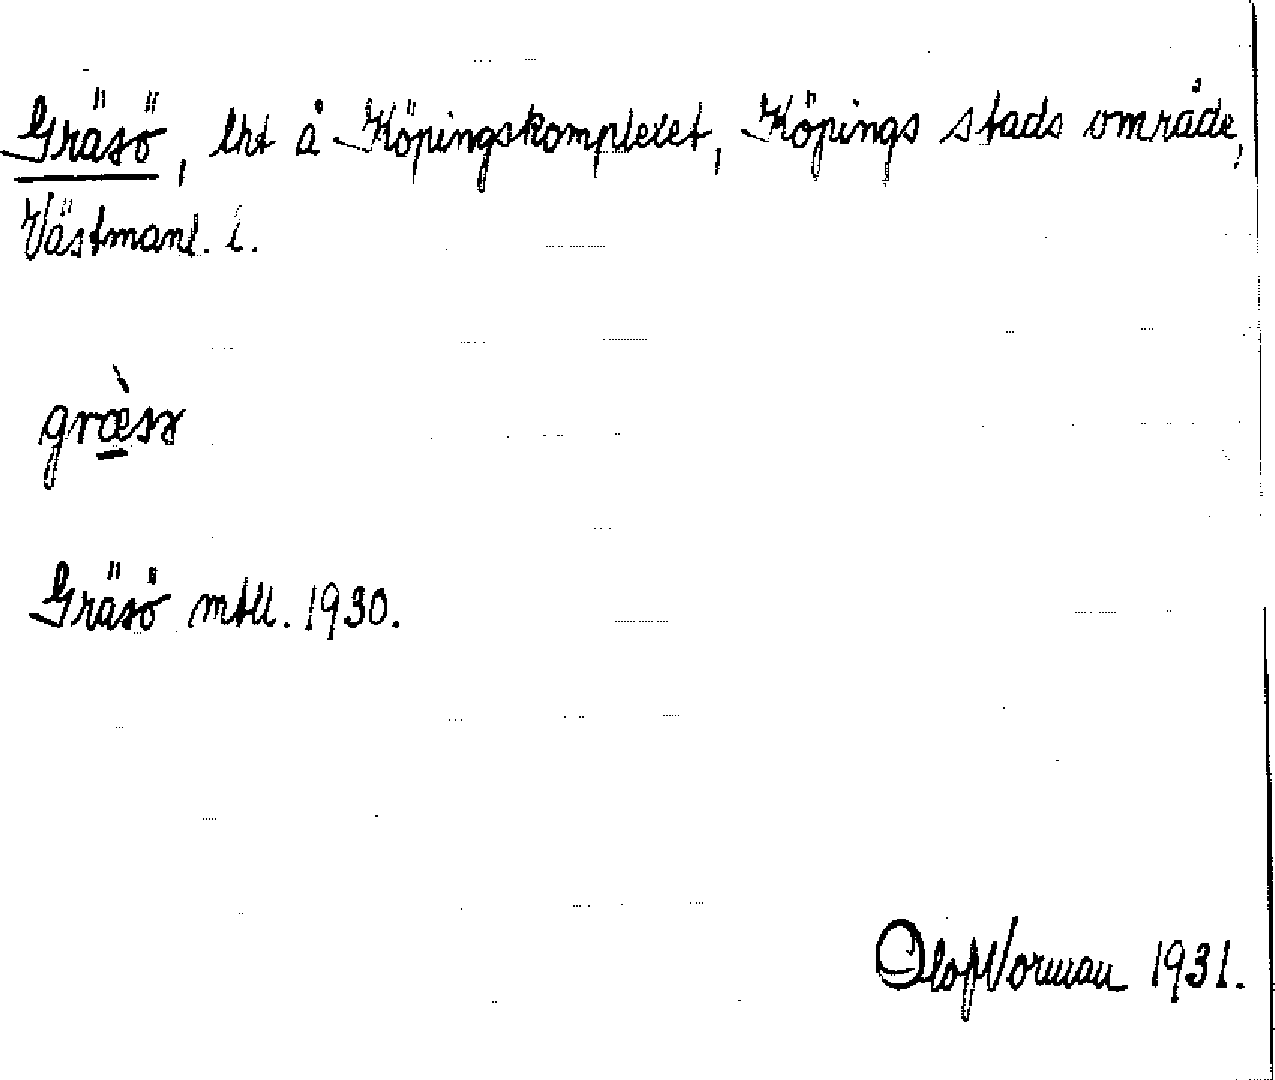 Gräsö, lht å Köpingskomplexet, Köpings stads område,
Västmanl. l.
Gräsö mtll. 1930.
Olof Norman 1931.